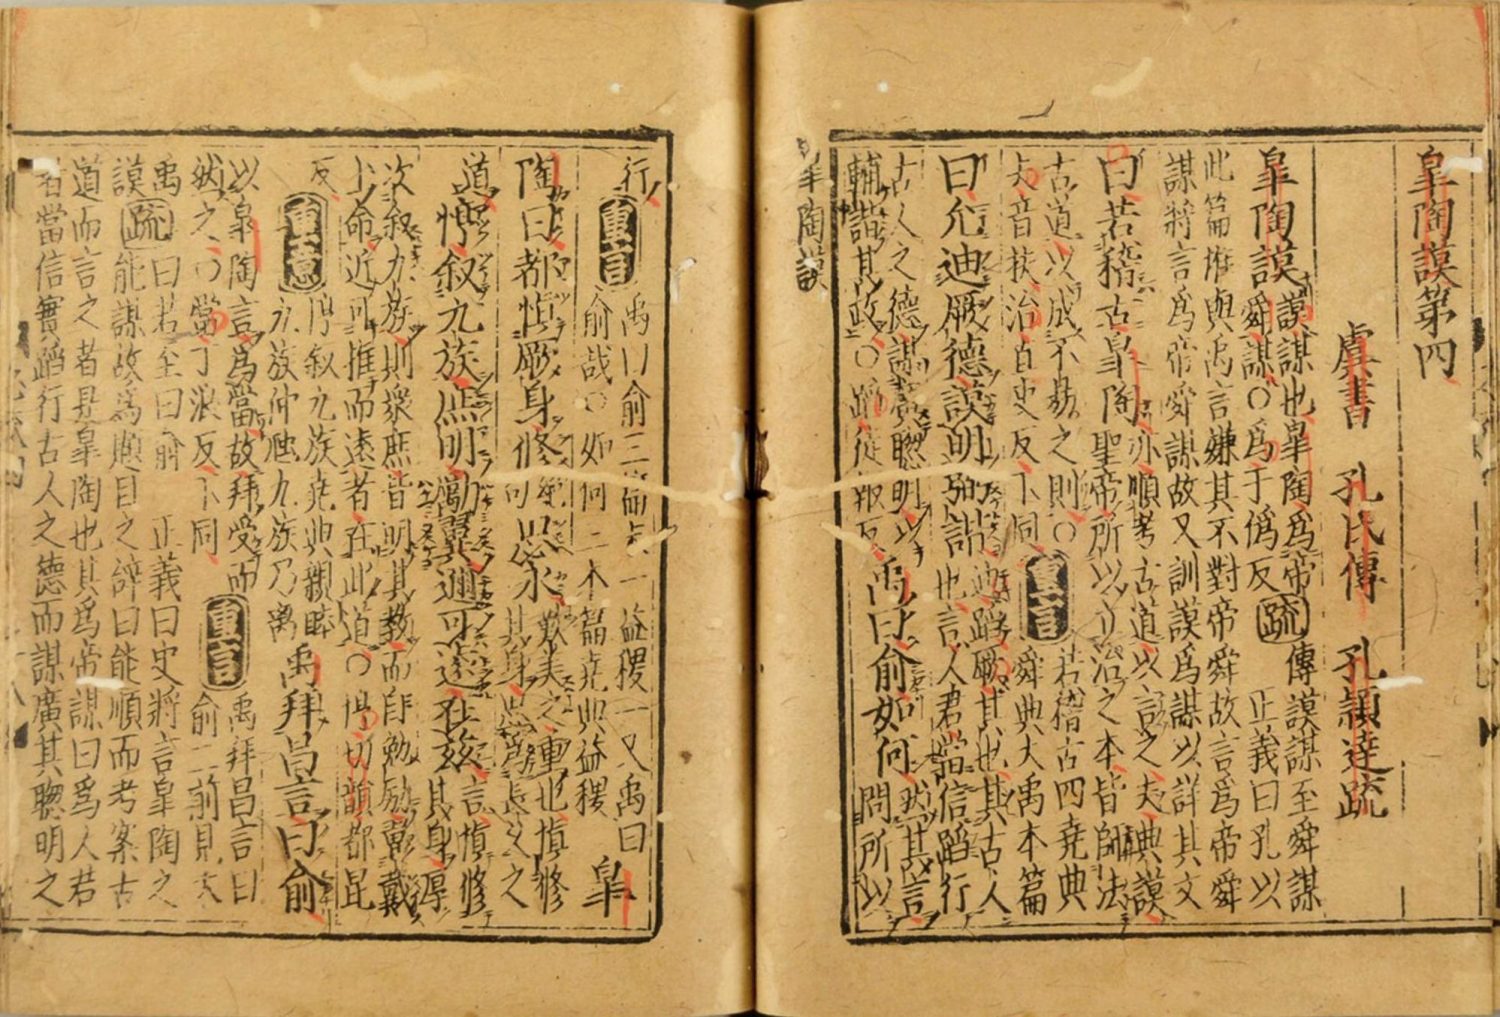 皐陶謨第四
虞書　孔氏傳　孔穎達疏
皐陶謨
謨謀也皐陶爲帝
舜謀○爲于僞反
疏
傳謨謀至舜謀
正義曰孔以
此篇惟與禹言嫌其不對帝舜故言爲帝舜
謀將言爲帝舜謀故又訓謨爲謀以詳其文
曰若稽古皐陶
亦順考古道以言之夫典謨
聖帝所以立治之本皆師法
古道以成不易之則○
夫音扶治直吏反下同
重言
若稽古四堯典
舜典大禹本篇
曰允迪厥德謨明弼諧
迪蹈厥其也其古人
也言人君當信蹈行
古人之德謀廣聰明以
輔諧其政○蹈徒報反
禹曰俞如何
然其言
問所以
皐陶謨
行
重言
禹曰俞三篇末一益稷一又禹曰
俞哉○如何二本篇堯典益稷
皐
陶曰都慎厥身修思永
歎美之重也慎修
其身思爲長久之
道
惇叙九族庶明勵翼邇可遠在茲
言慎修
其身厚
次叙九族則衆庶皆明其教而自勉勵翼戴
上命近可推而遠者在此道○惇切韻都昆
反
重意
惇叙九族堯典親睦
九族仲虺九族乃离
禹拜昌言曰俞
以皐陶言爲當故拜受而
然之○當丁浪反下同
重言
禹拜昌言曰
俞二前見大
禹
謨
疏
曰若至曰俞　正義曰史將言皐陶之
能謀故爲順目之辞曰能順而考案古
道而言之者是皐陶也其爲帝謀曰爲人君
若當信實蹈行古人之德而謀廣其聰明之